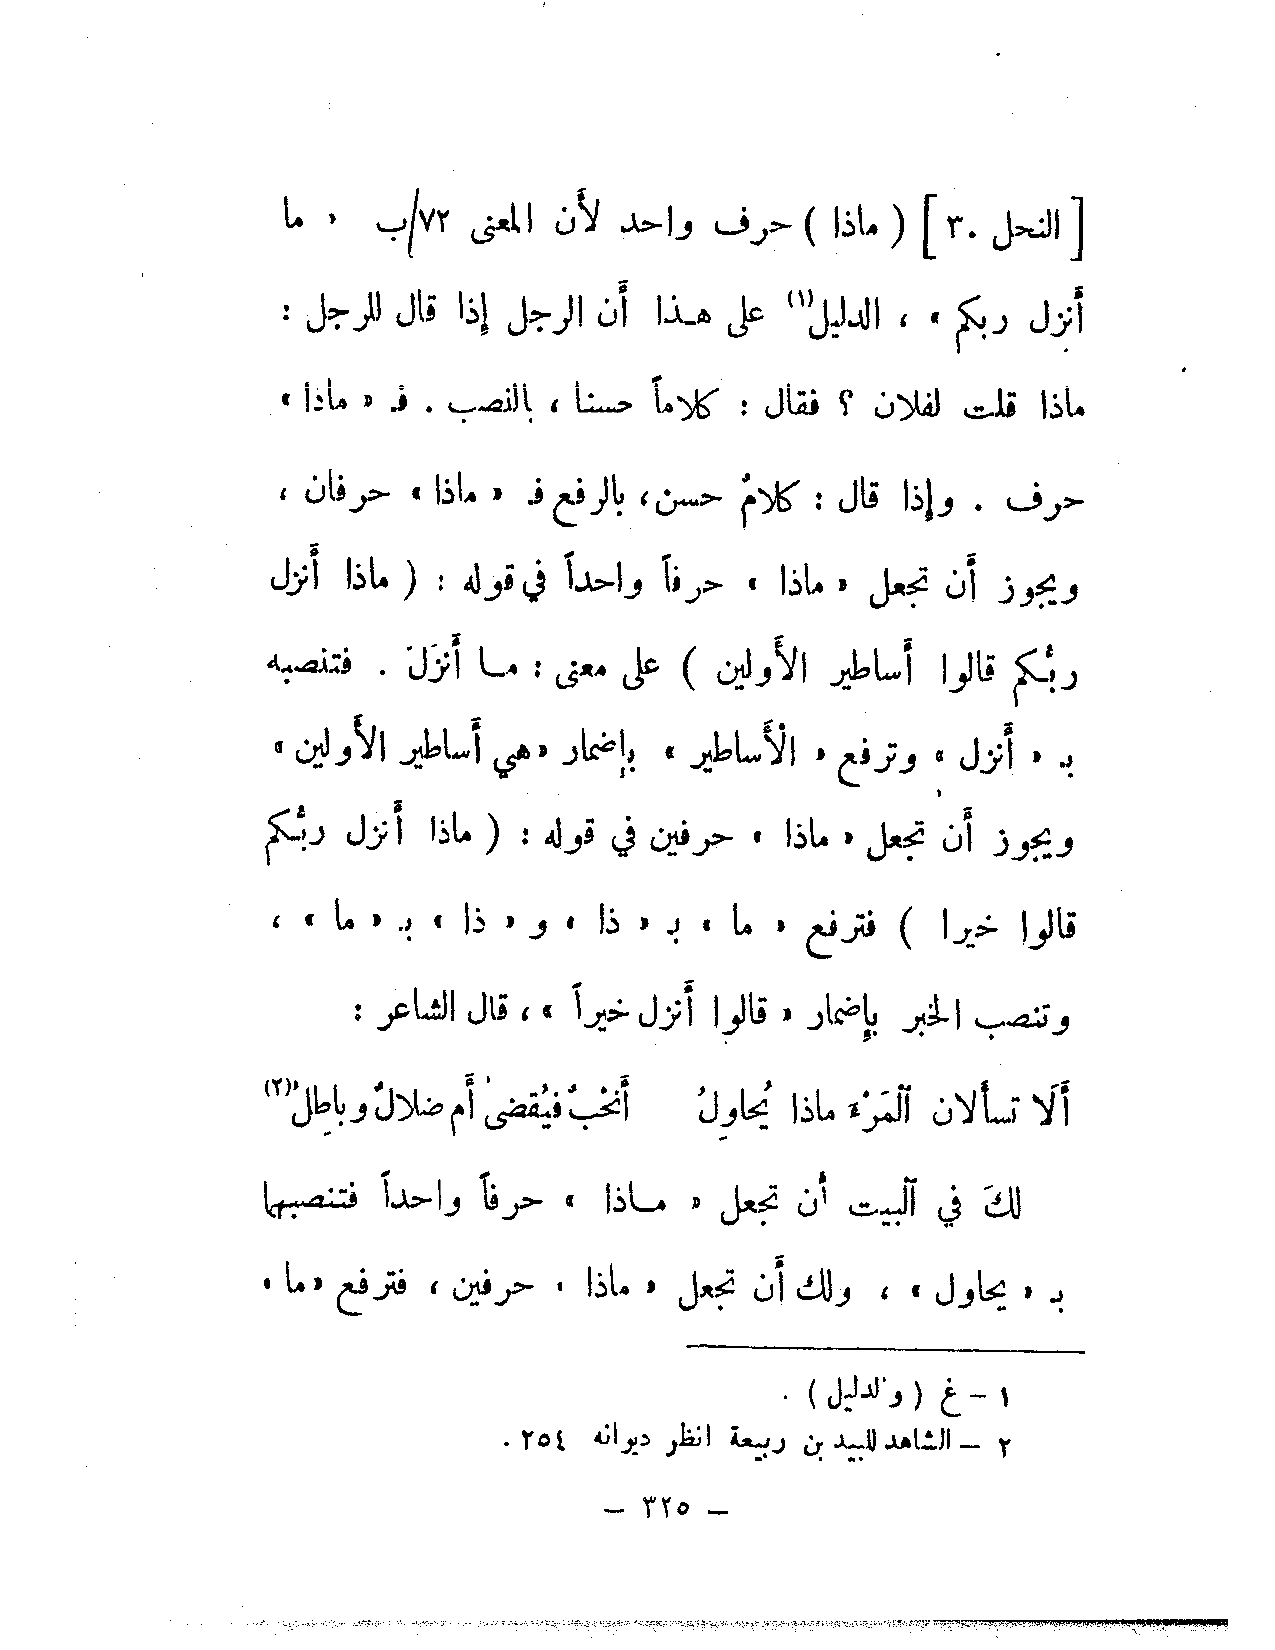 [ النحل ٣٠ ] ( ماذا ) حرف واحد لأن المعنى ٧٢/ب « ما
أنزل ربكم » ، الدليل(١) على هـذا أن الرجل إذا قال للرجل :
ماذا قلت لفلان ؟ فقال : كلاماً حسنا ، بالنصب . فـ « ماذا »
حرف . وإذا قال : كلامٌ حسن، بالرفع فـ « ماذا » حرفان ،
ويجوز أن تجعل « ماذا » حرفاً واحداً في قوله : ( ماذا أنزل
ربُّكم قالوا أساطير الأولين ) على معنى : مـا أنزَلَ . فتنصبه
بـ « أنزل » وترفع « الأساطير » بإضمار «هي أساطير الأولين »
ويجوز أن تجعل « ماذا » حرفين في قوله : ( ماذا أنزل ربُّكم
قالوا خيرا ) فترفع « ما » بـ « ذا » و « ذا » بـ « ما » ،
وتنصب الخبر بإضمار « قالوا أنزل خيراً » ، قال الشاعر :
أَلَا تسأَلان ٱلمَرْءَ ماذا يُحاوِلُ أَنَحْبٌ فيُقضىٰ أَم ضلالٌ وباطِلُ(٢)
لكَ في ٱلبيت أن تجعل « مـاذا » حرفاً واحداً فتنصبها
بـ « يحاول » ، ولك أن تجعل « ماذا » حرفين ، فترفع «ما»
١ – غ ( والدليل ) .
٢ – الشاهد للبيد بن ربيعة انظر ديوانه ٢٥٤ .
– ٣٢٥ –